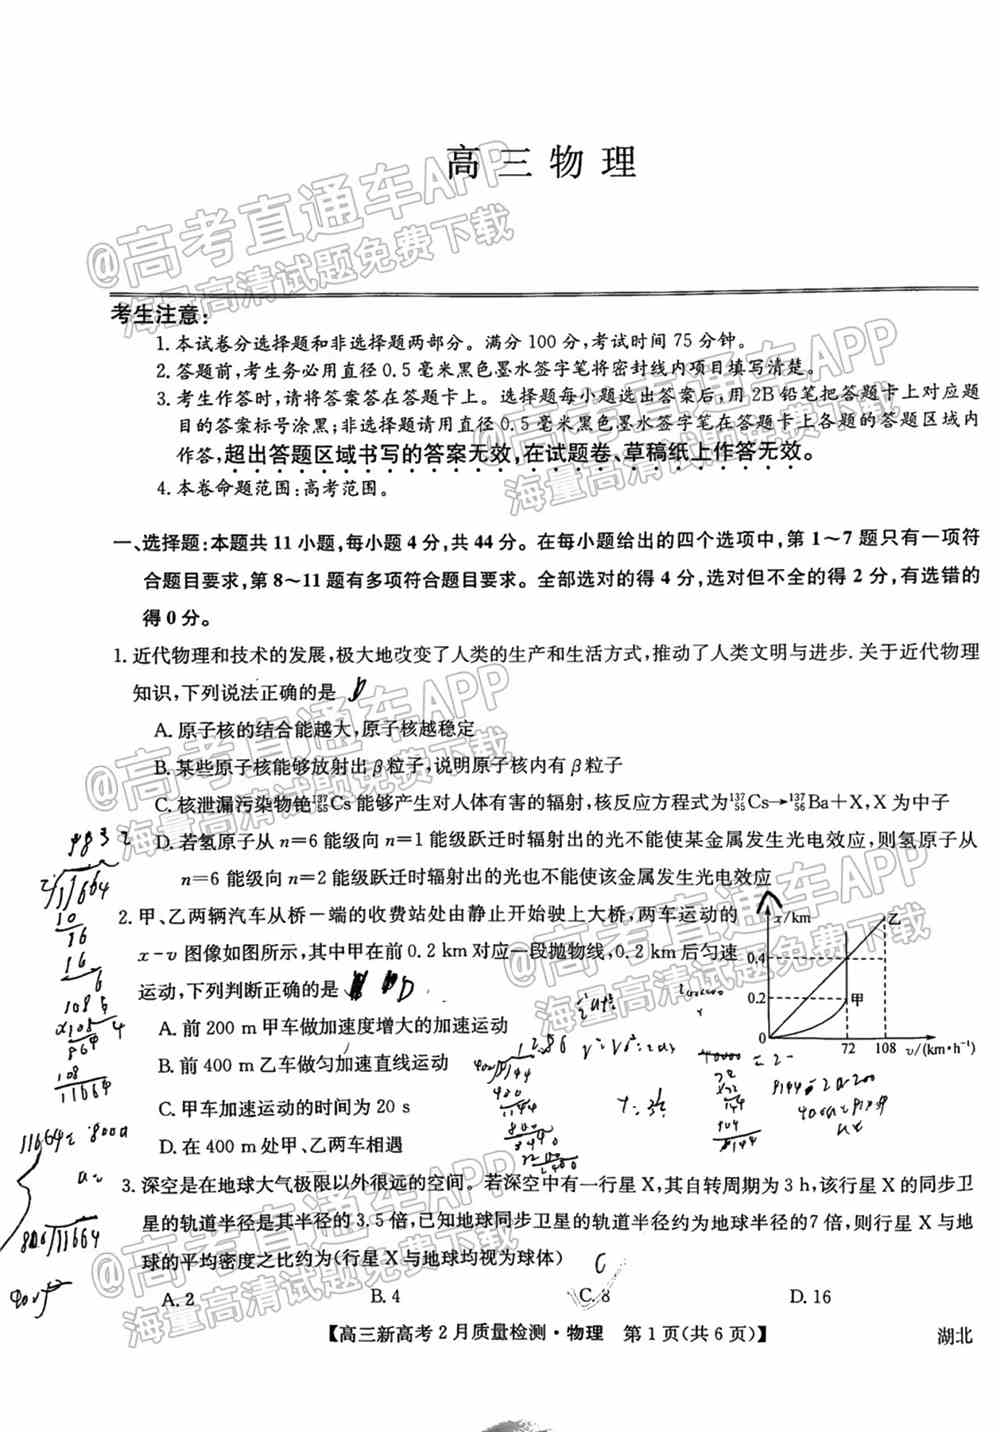 高三物理
@高考直通车APP
海量高清试题免费下载
考生注意:
1.本试卷分选择题和非选择题两部分。满分100分,考试时间75分钟。
2.答题前,考生务必用直径0.5毫米黑色墨水签字笔将密封线内项目填写清楚。
3.考生作答时,请将答案答在答题卡上。选择题每小题选出答案后,用2B铅笔把答题卡上对应题
目的答案标号涂黑;非选择题请用直径0.5毫米黑色墨水签字笔在答题卡上各题的答题区域内
作答,超出答题区域书写的答案无效,在试题卷、草稿纸上作答无效。
4.本卷命题范围:高考范围。
@高考直通车APP
海量高清试题免费下载
一、选择题:本题共11小题,每小题4分,共44分。在每小题给出的四个选项中,第1~7题只有一项符
合题目要求,第8~11题有多项符合题目要求。全部选对的得4分,选对但不全的得2分,有选错的
得0分。
1.近代物理和技术的发展,极大地改变了人类的生产和生活方式,推动了人类文明与进步.关于近代物理
知识,下列说法正确的是 D
A.原子核的结合能越大,原子核越稳定
B.某些原子核能够放射出β粒子,说明原子核内有β粒子
C.核泄漏污染物铯¹³⁷₅₅Cs能够产生对人体有害的辐射,核反应方程式为¹³⁷₅₅Cs→¹³⁷₅₆Ba+X,X为中子
D.若氢原子从n=6能级向n=1能级跃迁时辐射出的光不能使某金属发生光电效应,则氢原子从
n=6能级向n=2能级跃迁时辐射出的光也不能使该金属发生光电效应
@高考直通车APP
海量高清试题免费下载
2.甲、乙两辆汽车从桥一端的收费站处由静止开始驶上大桥,两车运动的
x-v图像如图所示,其中甲在前0.2km对应一段抛物线,0.2km后匀速
运动,下列判断正确的是 D
A.前200m甲车做加速度增大的加速运动
B.前400m乙车做匀加速直线运动
C.甲车加速运动的时间为20s
D.在400m处甲、乙两车相遇
x/km
乙
0.4
0.2
甲
0
72 108 v/(km·h⁻¹)
@高考直通车APP
海量高清试题免费下载
11664
10
16
16
6
108
864
108
11664
3.深空是在地球大气极限以外很远的空间。若深空中有一行星X,其自转周期为3h,该行星X的同步卫
星的轨道半径是其半径的3.5倍,已知地球同步卫星的轨道半径约为地球半径的7倍,则行星X与地
球的平均密度之比约为(行星X与地球均视为球体) C
A.2 B.4 C.8 D.16
@高考直通车APP
海量高清试题免费下载
【高三新高考2月质量检测·物理 第1页(共6页)】 湖北